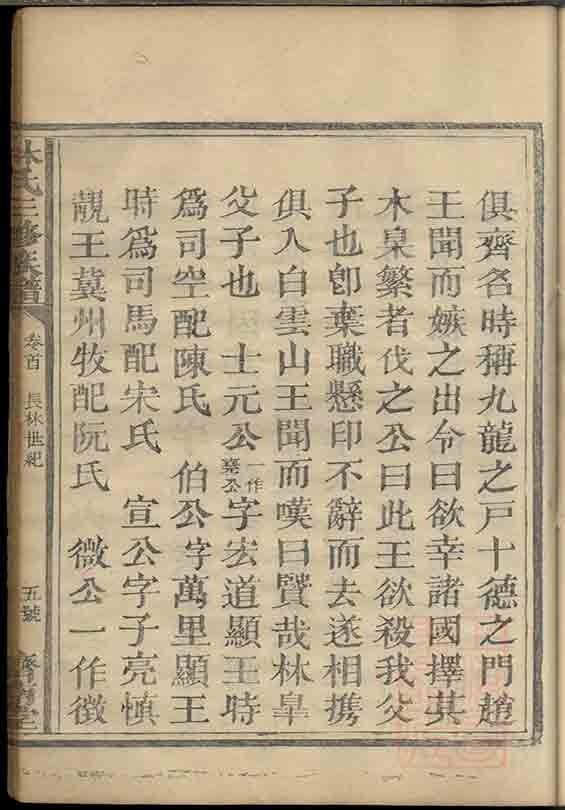 俱齊名時稱九龍之戸十德之門趙
王聞而嫉之出令曰欲幸諸國擇其
木臬繁者伐之公曰此王欲殺我父
子也卽棄職懸印不辭而去遂相携
俱入白雲山王聞而嘆曰賢哉林臯
父子也 士元公一作堯公字宏道顯王時
爲司空配陳氏 伯公字萬里顯王
時爲司馬配宋氏 宣公字子亮慎
靚王冀州牧配阮氏 微公一作徵
林氏三修族譜 卷首 長林世紀 五號